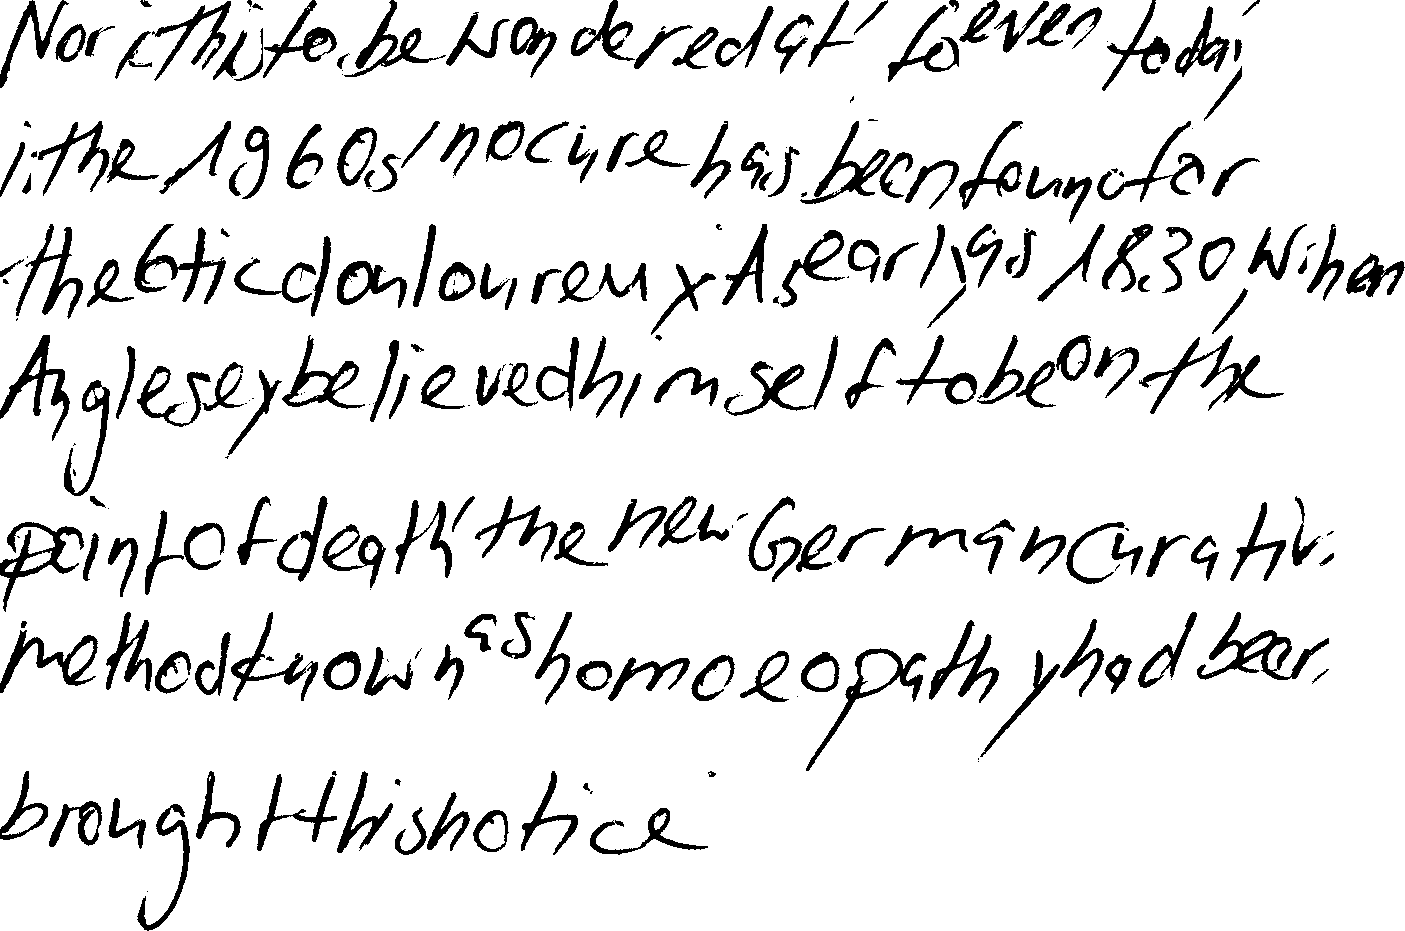 Nor is this to be wondered at, for even today,
in the 1960s, no cure has been found for
the tic douloureux. As early as 1830, when
Anglesey believed himself to be on the
point of death, the new German curative
method known as homoeopathy had been
brought to his notice